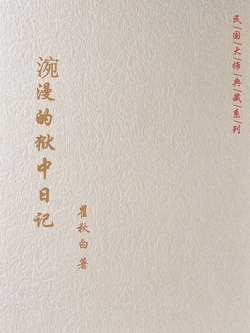 民/国/大/师/典/藏/系/列
涴漫的狱中日记
瞿秋白 著